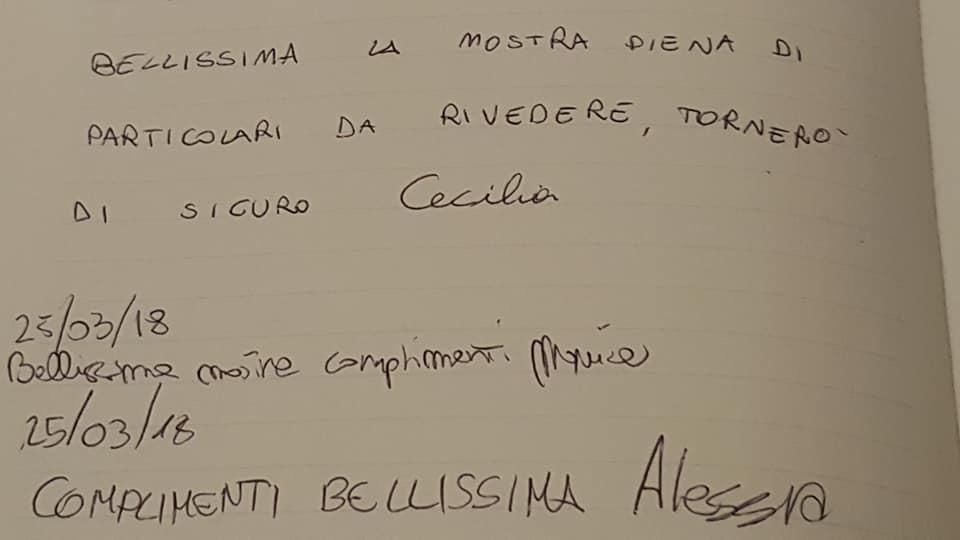 BELLISSIMA LA MOSTRA PIENA DI
PARTICOLARI DA RIVEDERE, TORNERO`
DI SICURO Cecilia
25/03/18
Bellissima complimenti.
25/03/18
COMPLIMENTI BELLISSIMA Alessia